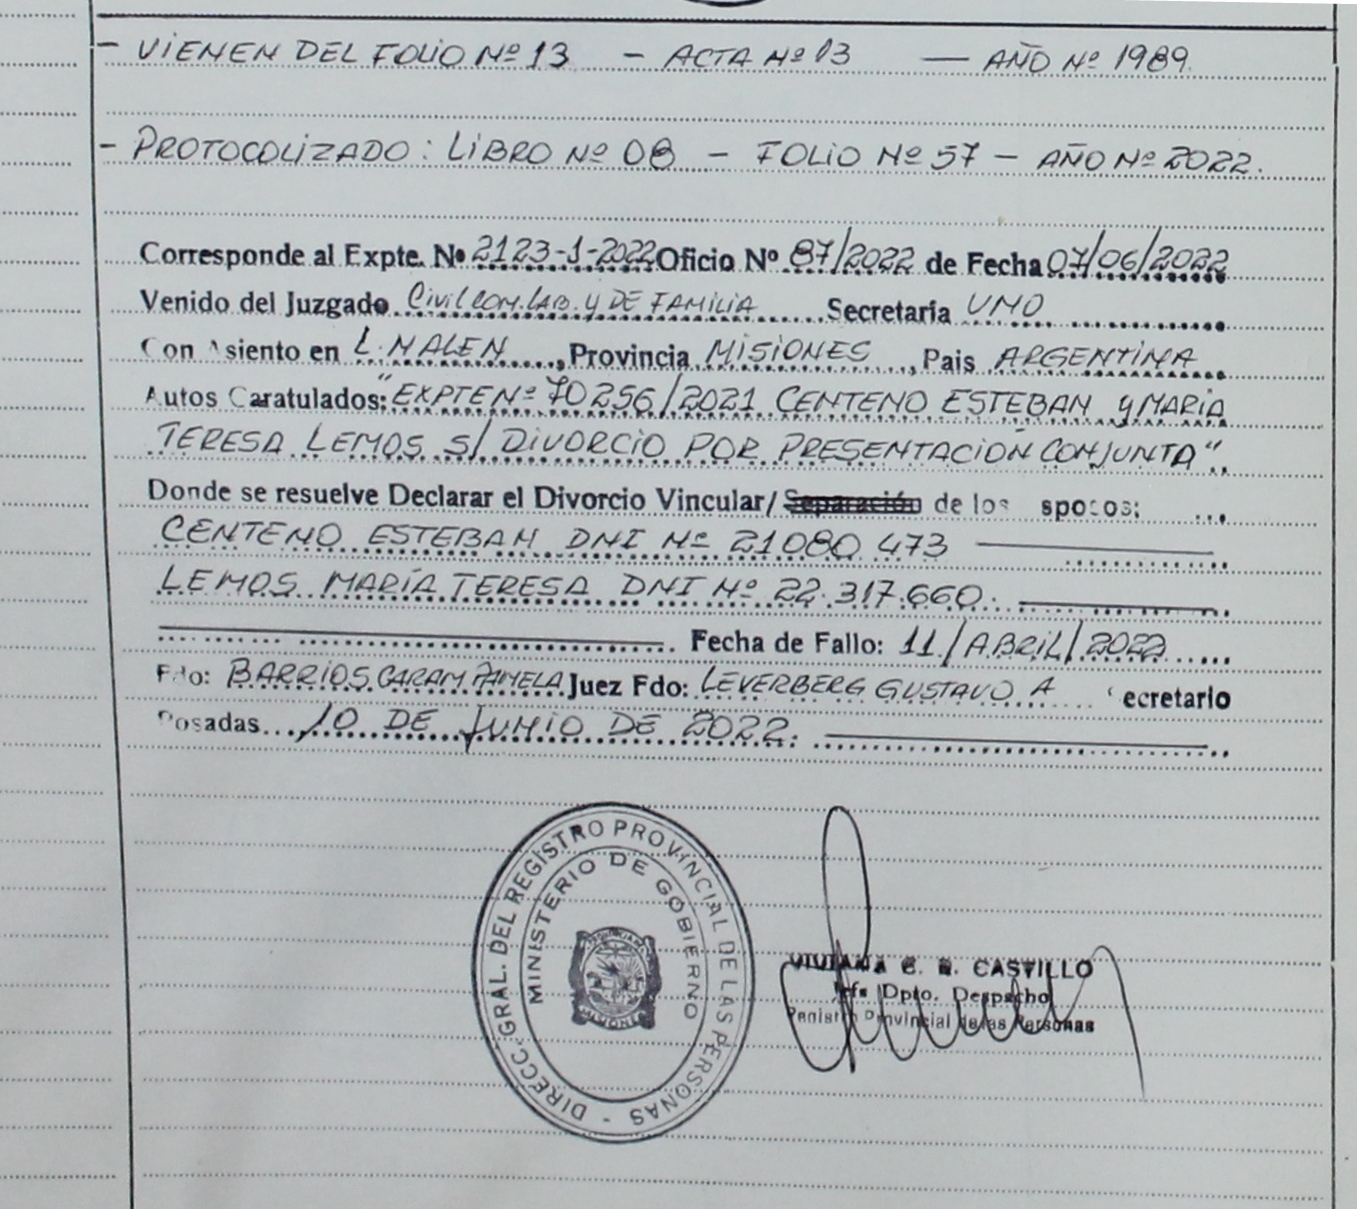 - VIENEN DEL FOLIO Nº 13 - ACTA Nº 13 — AÑO Nº 1989.
- PROTOCOLIZADO: LIBRO Nº 08 - FOLIO Nº 57 - AÑO Nº 2022.
Corresponde al Expte. Nº 2123-1-2022 Oficio Nº 87/2022 de Fecha 07/06/2022
Venido del Juzgado Civil COM. LAB. Y DE FAMILIA Secretaria UNO
Con Asiento en L.N ALEM, Provincia MISIONES, Pais ARGENTINA
Autos Caratulados: "EXPTE Nº 70256/2021 CENTENO ESTEBAN y MARÍA
TERESA LEMOS S/ DIVORCIO POR PRESENTACIÓN CONJUNTA"
Donde se resuelve Declarar el Divorcio Vincular/ Separación de los sposos:
CENTENO ESTEBAN DNI Nº 21080.473
LEMOS MARÍA TERESA DNI Nº 22.317.660.
Fecha de Fallo: 11/ABRIL/2022
Fdo: BARRIOS CARAM PAMELA Juez Fdo: LEVERBERG GUSTAVO A ecretario
Posadas 10 DE JUNIO DE 2022.
DIRECC. GRAL. DEL REGISTRO PROVINCIAL DE LAS PERSONAS -
MINISTERIO DE GOBIERNO
MISIONES
VIVIANA C. R. CASTILLO
Jefe Dpto. Despacho
Registro Provincial de las Personas